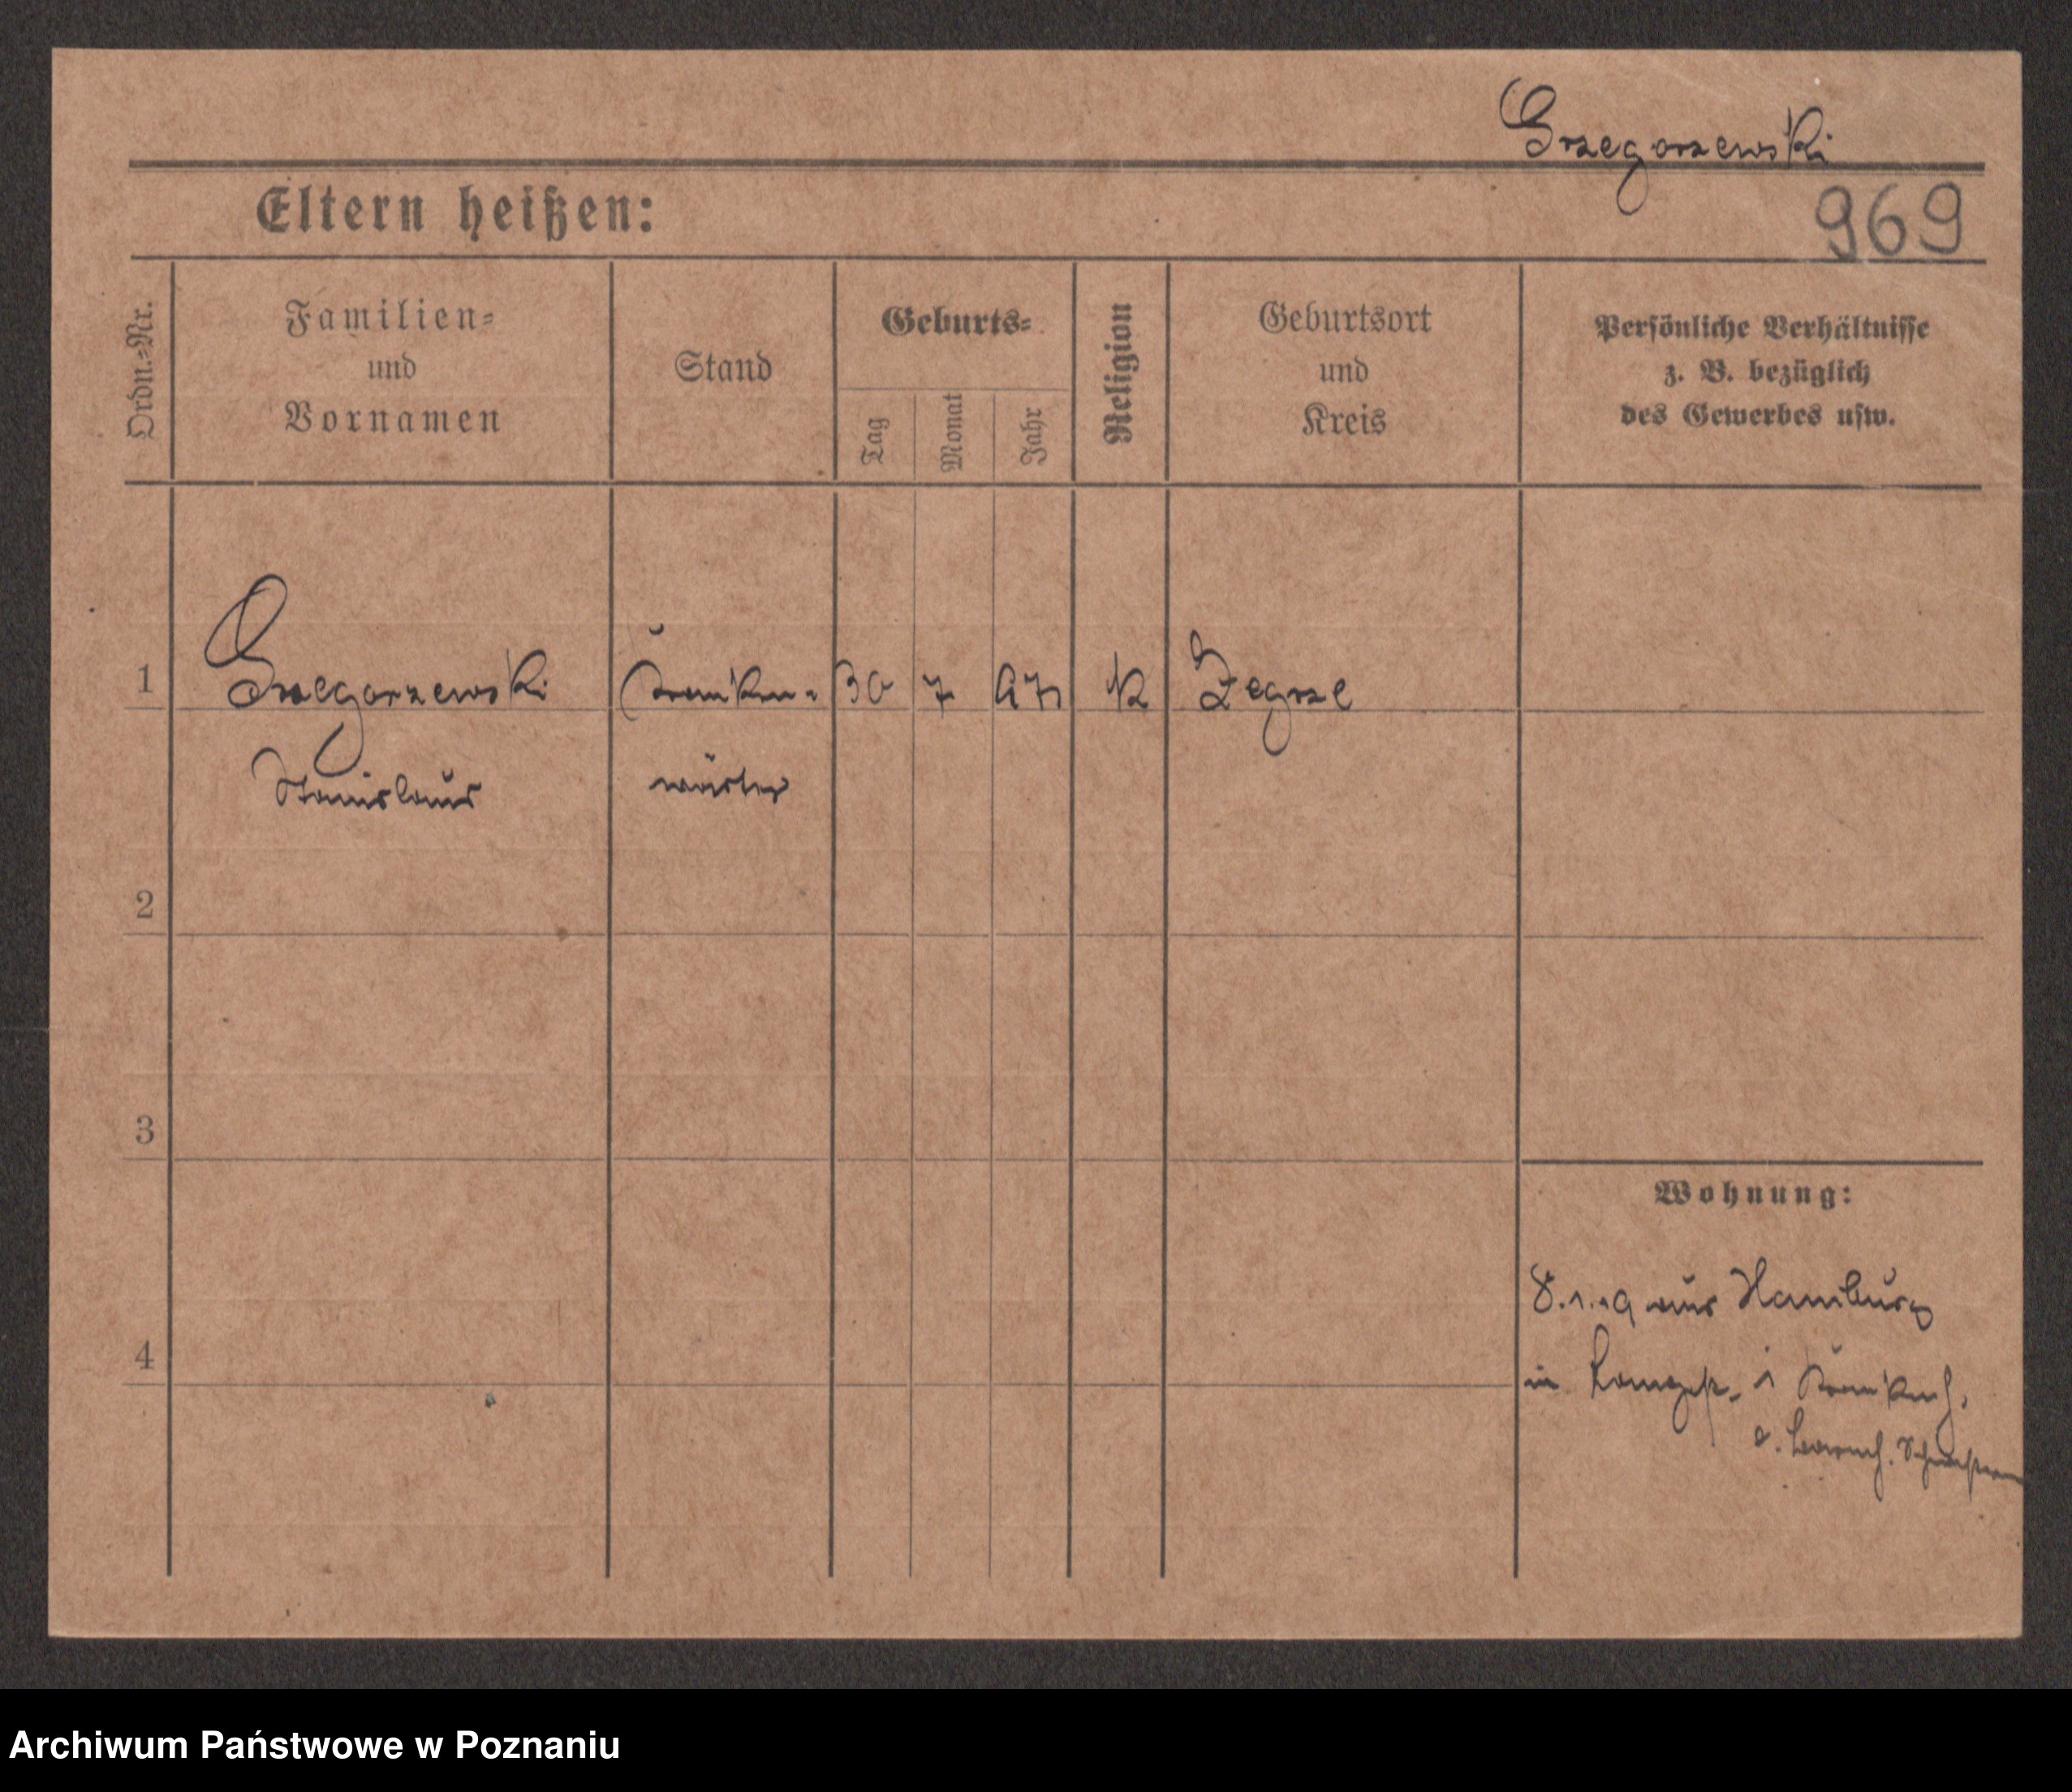 Grzegorzewski
969
Eltern heißen:
Ordn.=Nr.
Familien=
und
Vornamen
Stand
Geburts=
Tag
Monat
Jahr
Religion
Geburtsort
und
Kreis
Persönliche Verhältnisse
z. B. bezüglich
des Gewerbes usw.
1 Grzegorzewski Kranken= 30 7 K Zegrze
Stanislaus wärter
2
3
Wohnung:
8.1.19 aus Hamburg
4
in
Archiwum Państwowe w Poznaniu